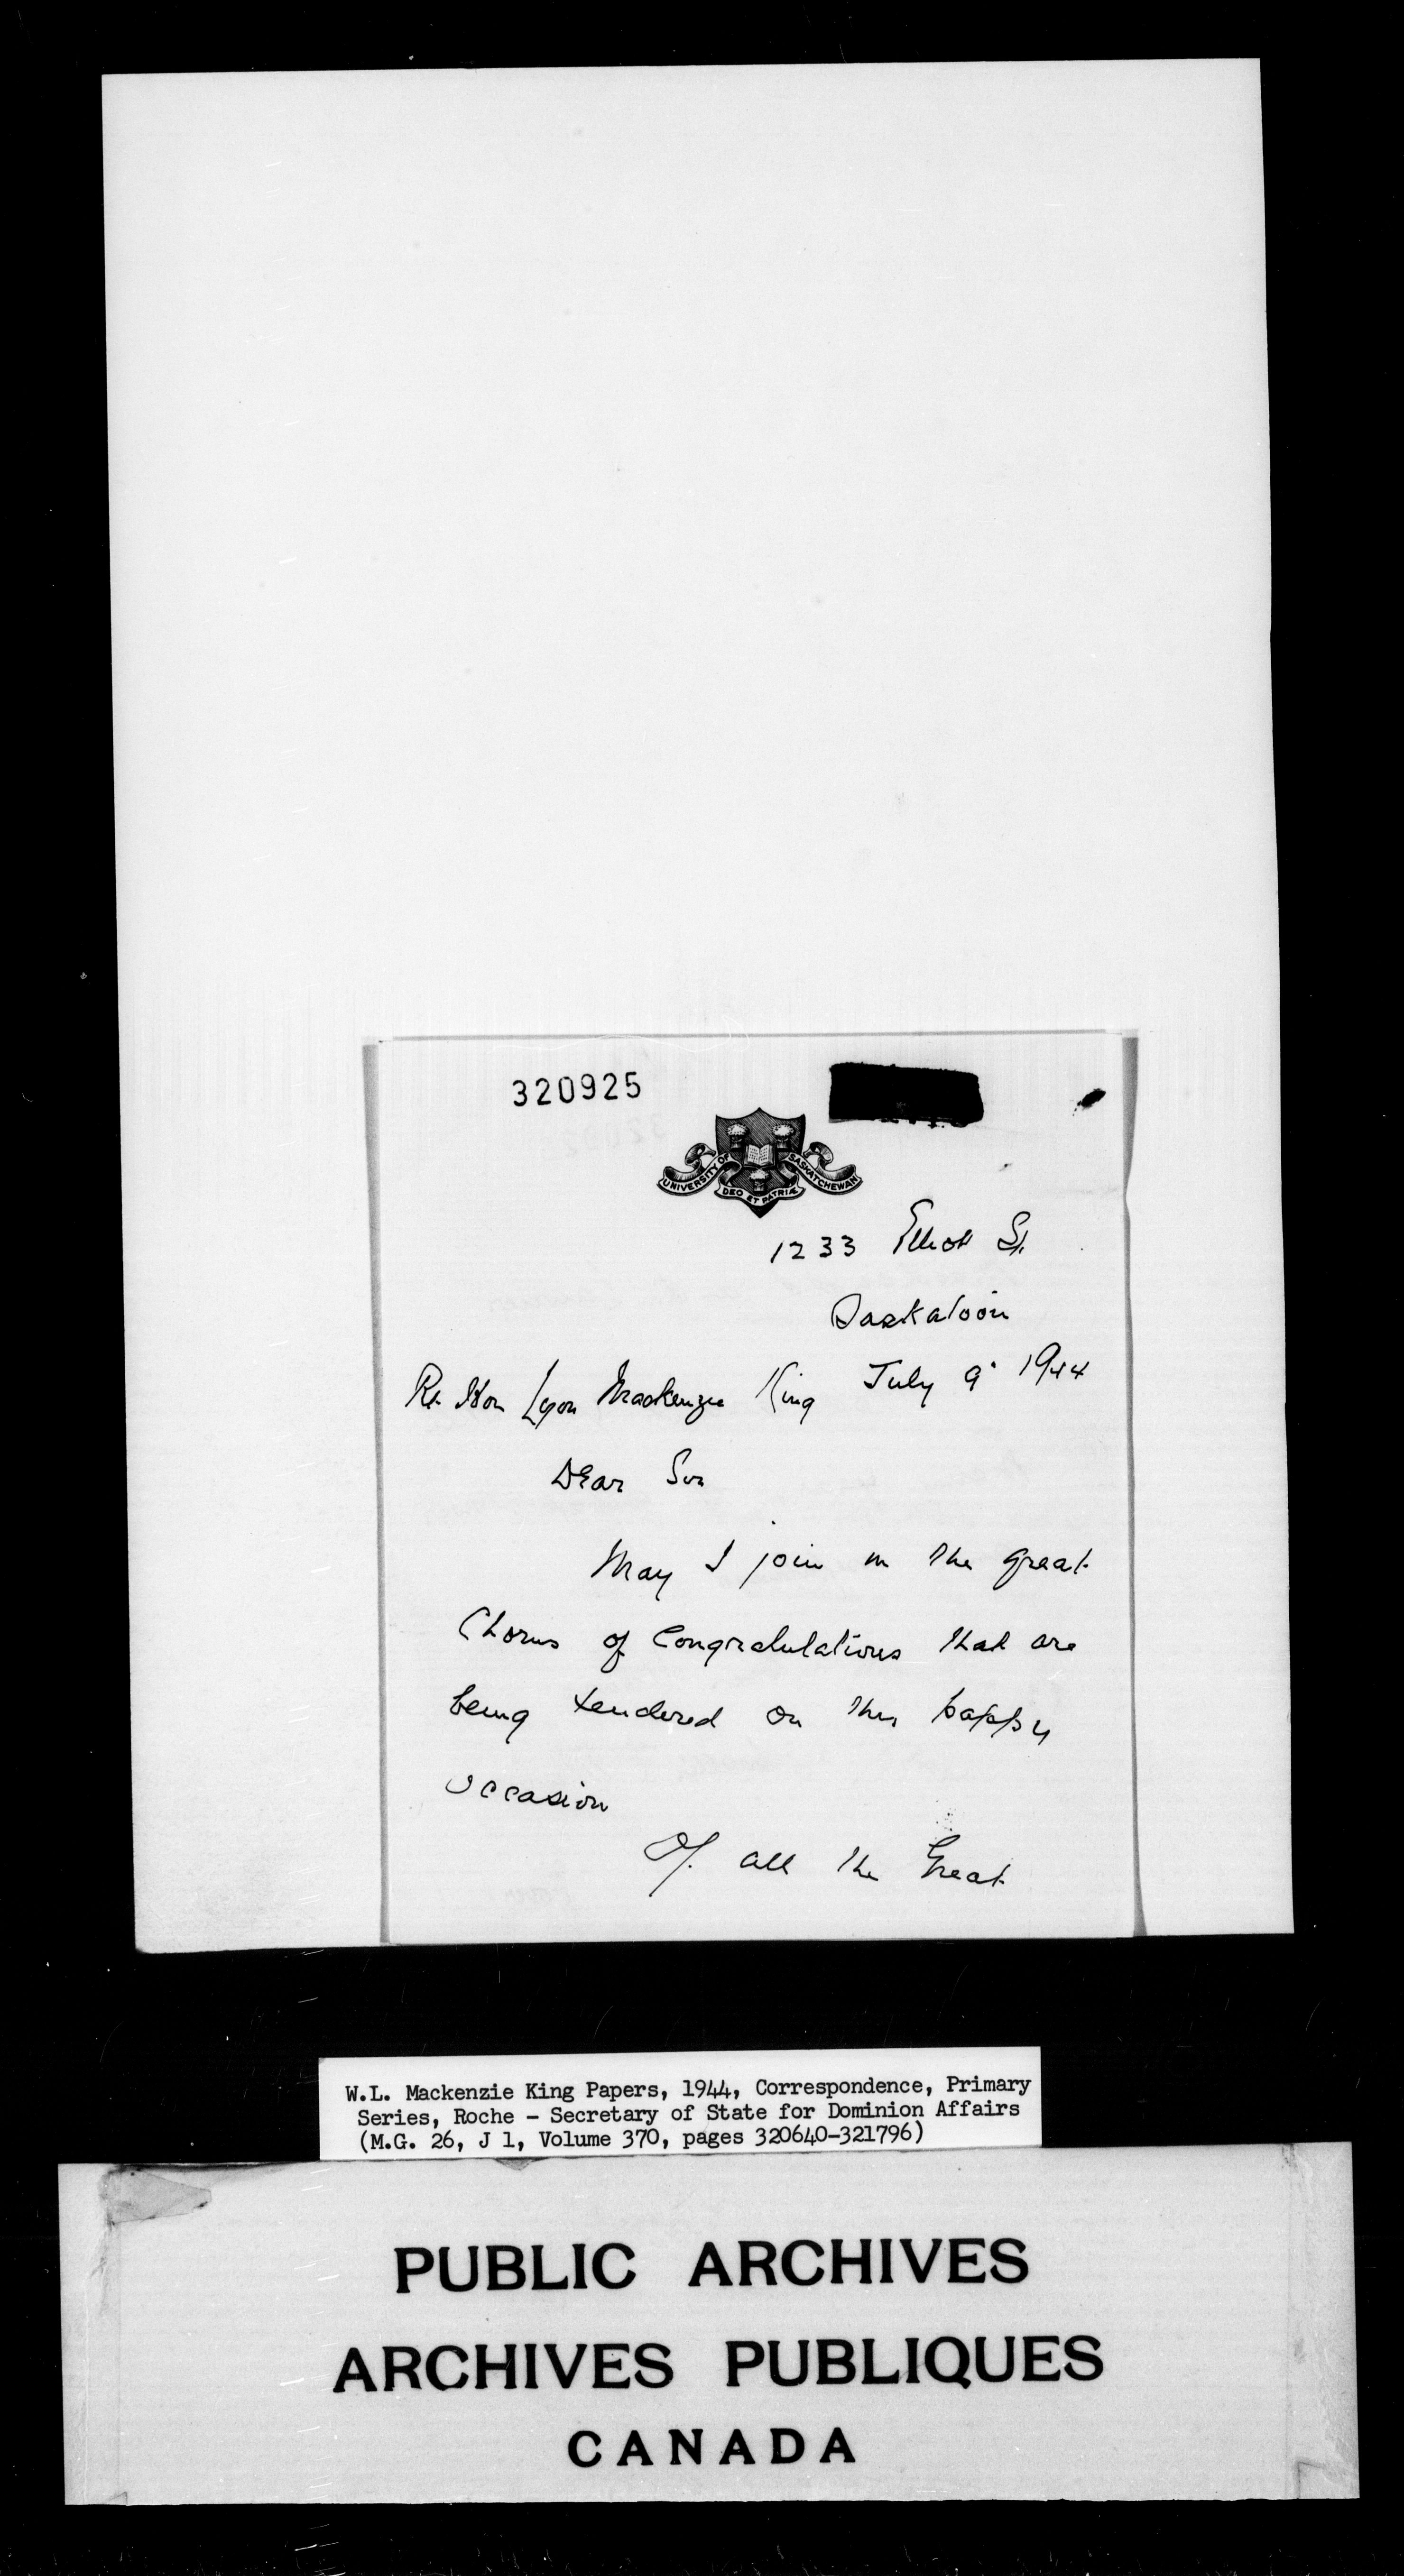 320925
UNIVERSITY OF SASKATCHEWAN
DEO ET PATRIÆ
1233 Elliott St.
Saskatoon
Rt. Hon Lyon Mackenzie King July 9 1944
Dear Sir
May I join in the great
Chorus of Congratulations that are
being tendered on this happy
occasion
Of all the Great
W.L. Mackenzie King Papers, 1944, Correspondence, Primary
Series, Roche - Secretary of State for Dominion Affairs
(M.G. 26, J 1, Volume 370, pages 320640-321796)
PUBLIC ARCHIVES
ARCHIVES PUBLIQUES
CANADA